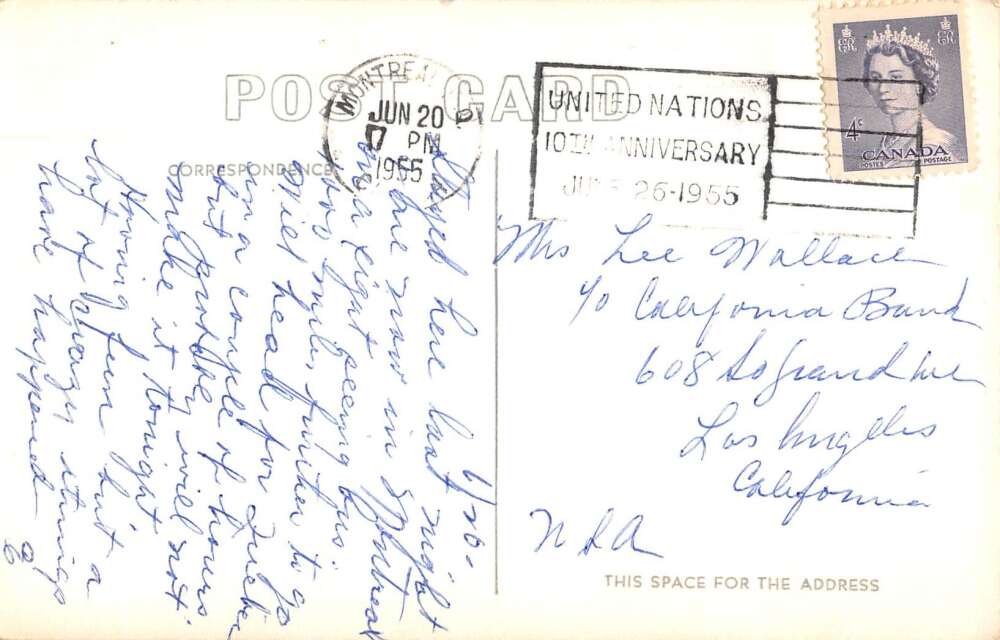 POST CARD
CORRESPONDENCE
MONTREAL P.
JUN 20
7 PM
1955
UNITED NATIONS
10TH ANNIVERSARY
JUNE 26-1955
4¢
CANADA
POSTES POSTAGE
6/20-
Stayed here last night
are now in Montreal
on a sight seeing bus.
miles further to go
Will head for Quebec
in a couple of hours
but probably will not
make it tonight
Having fun but a
lot of crazy things
have happened
Mrs Lee Wallace
c/o California Bank
608 So Grand Ave
Los Angeles
California
USA
THIS SPACE FOR THE ADDRESS